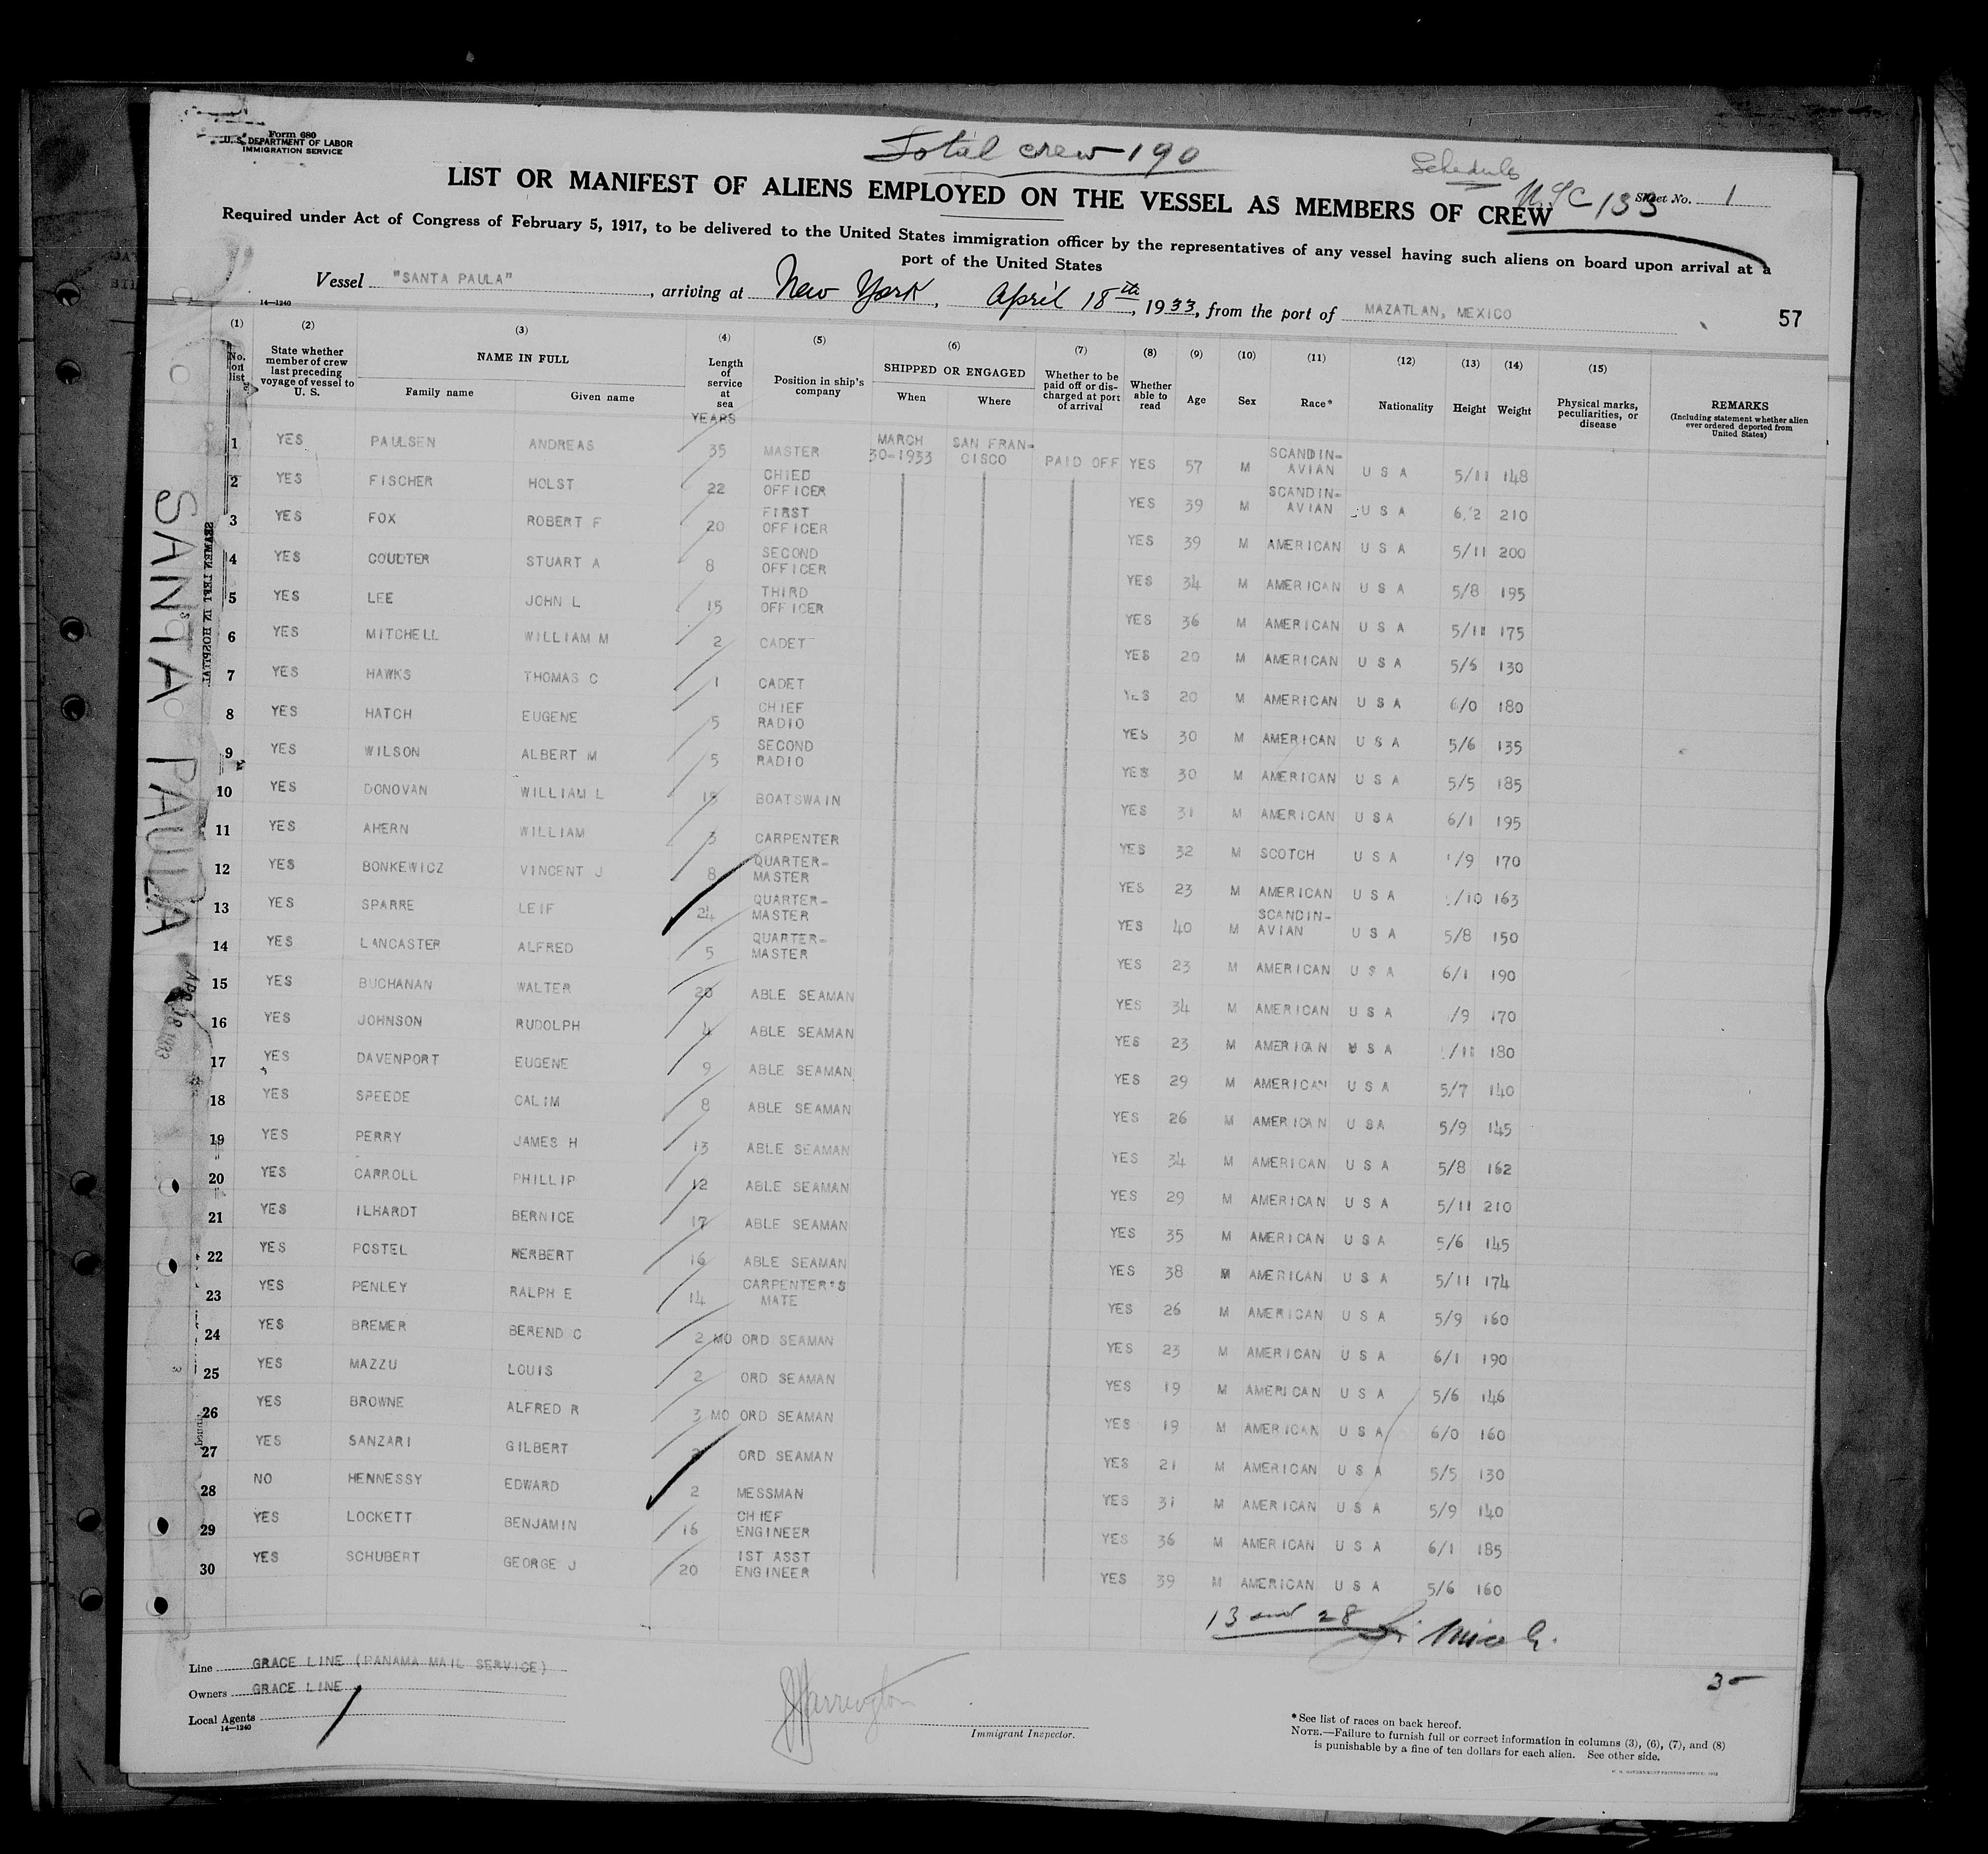 Form 680
U. S. DEPARTMENT OF LABOR
IMMIGRATION SERVICE
Total crew 190
Schedule
LIST OR MANIFEST OF ALIENS EMPLOYED ON THE VESSEL AS MEMBERS OF CREW
Sheet No. 1
133
Required under Act of Congress of February 5, 1917, to be delivered to the United States immigration officer by the representatives of any vessel having such aliens on board upon arrival at a
port of the United States
Vessel "SANTA PAULA", arriving at New York, April 18th, 1933, from the port of MAZATLAN, MEXICO
14—1240
57
(1) (2) (3) (4) (5) (6) (7) (8) (9) (10) (11) (12) (13) (14) (15)
No. on list | State whether member of crew last preceding voyage of vessel to U. S. | NAME IN FULL Family name Given name | Length of service at sea | Position in ship's company | SHIPPED OR ENGAGED When Where | Whether to be paid off or discharged at port of arrival | Whether able to read | Age | Sex | Race* | Nationality | Height | Weight | Physical marks, peculiarities, or disease | REMARKS (Including statement whether alien ever ordered deported from United States)
YEARS
1 YES PAULSEN ANDREAS 35 MASTER MARCH 30-1933 SAN FRAN-CISCO PAID OFF YES 57 M SCANDIN-AVIAN U S A 5/11 148
2 YES FISCHER HOLST 22 CHIED OFFICER YES 39 M SCANDIN-AVIAN U S A 6/2 210
3 YES FOX ROBERT F 20 FIRST OFFICER YES 39 M AMERICAN U S A 5/11 200
4 YES COULTER STUART A 8 SECOND OFFICER YES 34 M AMERICAN U S A 5/8 195
5 YES LEE JOHN L 15 THIRD OFFICER YES 36 M AMERICAN U S A 5/11 175
6 YES MITCHELL WILLIAM M 2 CADET YES 20 M AMERICAN U S A 5/6 130
7 YES HAWKS THOMAS C 1 CADET YES 20 M AMERICAN U S A 6/0 180
8 YES HATCH EUGENE 5 CHIEF RADIO YES 30 M AMERICAN U S A 5/6 135
9 YES WILSON ALBERT M 5 SECOND RADIO YES 30 M AMERICAN U S A 5/5 185
10 YES DONOVAN WILLIAM L BOATSWAIN YES 31 M AMERICAN U S A 6/1 195
11 YES AHERN WILLIAM 3 CARPENTER YES 32 M SCOTCH U S A /9 170
12 YES BONKEWICZ VINCENT J 8 QUARTER-MASTER YES 23 M AMERICAN U S A /10 163
13 YES SPARRE LEIF 24 QUARTER-MASTER YES 40 M SCANDIN-AVIAN U S A 5/8 150
14 YES LANCASTER ALFRED 5 QUARTER-MASTER YES 23 M AMERICAN U S A 6/1 190
15 YES BUCHANAN WALTER 20 ABLE SEAMAN YES 34 M AMERICAN U S A /9 170
16 YES JOHNSON RUDOLPH 4 ABLE SEAMAN YES 23 M AMERICAN U S A /11 180
17 YES DAVENPORT EUGENE 9 ABLE SEAMAN YES 29 M AMERICAN U S A 5/7 140
18 YES SPEEDE CALIM 8 ABLE SEAMAN YES 26 M AMERICAN U S A 5/9 145
19 YES PERRY JAMES H 13 ABLE SEAMAN YES 34 M AMERICAN U S A 5/8 162
20 YES CARROLL PHILLIP 12 ABLE SEAMAN YES 29 M AMERICAN U S A 5/11 210
21 YES ILHARDT BERNICE 17 ABLE SEAMAN YES 35 M AMERICAN U S A 5/6 145
22 YES POSTEL HERBERT 16 ABLE SEAMAN YES 38 M AMERICAN U S A 5/11 174
23 YES PENLEY RALPH E 14 CARPENTER'S MATE YES 26 M AMERICAN U S A 5/9 160
24 YES BREMER BEREND C 2 MO ORD SEAMAN YES 23 M AMERICAN U S A 6/1 190
25 YES MAZZU LOUIS 2 ORD SEAMAN YES 19 M AMERICAN U S A 5/6 146
26 YES BROWNE ALFRED R 3 MO ORD SEAMAN YES 19 M AMERICAN U S A 6/0 160
27 YES SANZARI GILBERT ORD SEAMAN YES 21 M AMERICAN U S A 5/5 130
28 NO HENNESSY EDWARD 2 MESSMAN YES 31 M AMERICAN U S A 5/9 140
29 YES LOCKETT BENJAMIN 16 CHIEF ENGINEER YES 36 M AMERICAN U S A 6/1 185
30 YES SCHUBERT GEORGE J 20 1ST ASST ENGINEER YES 39 M AMERICAN U S A 5/6 160
13 and 28
Line GRACE LINE (PANAMA MAIL SERVICE)
Owners GRACE LINE
Local Agents
14—1240
Immigrant Inspector.
*See list of races on back hereof.
NOTE.—Failure to furnish full or correct information in columns (3), (6), (7), and (8)
is punishable by a fine of ten dollars for each alien. See other side.
SANTA PAULA
SEAMEN LEFT IN HOSPITAL